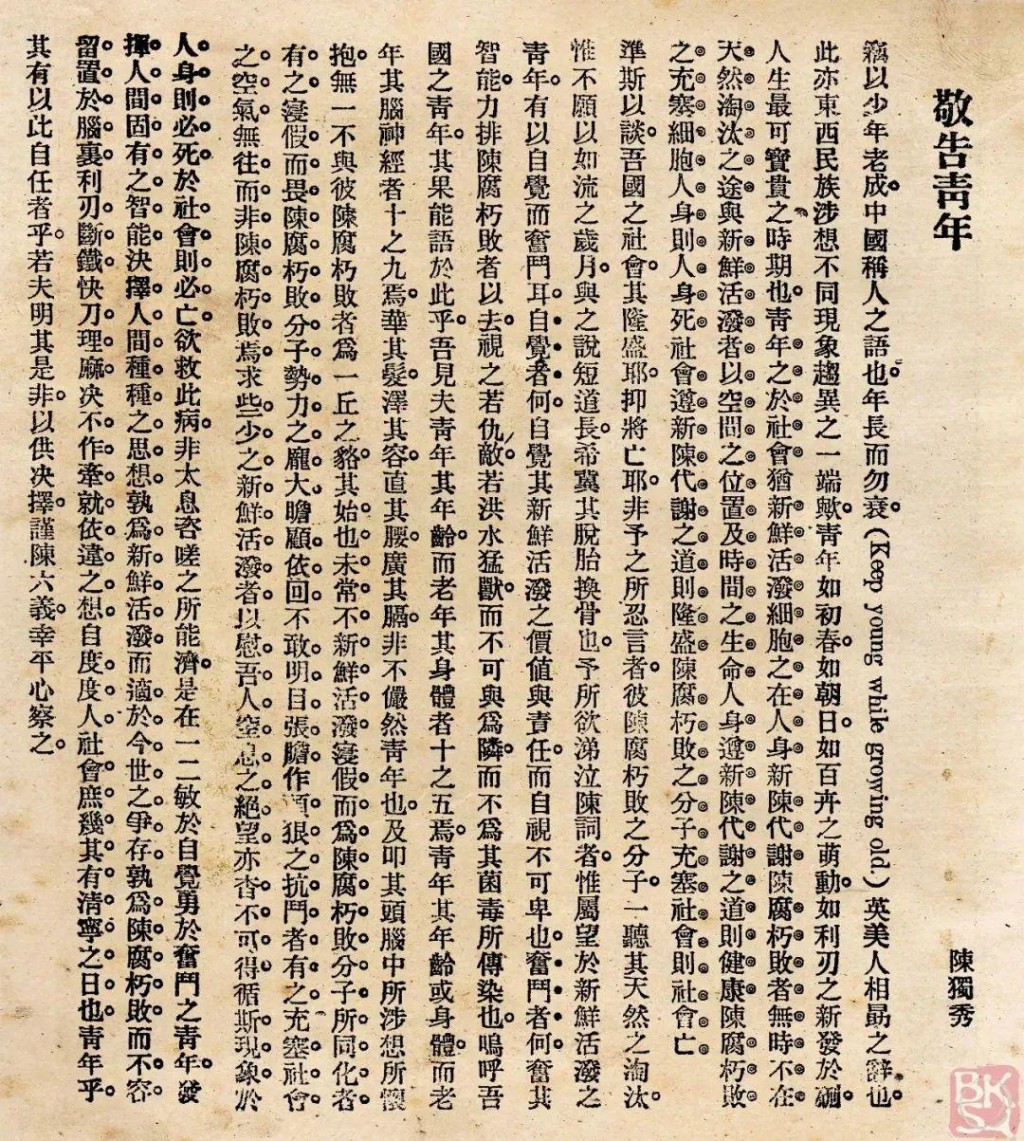 敬告靑年
陳獨秀
竊以少年老成。中國稱人之語也。年長而勿衰(Keep young while growing old.)英美人相勗之辭也。
此亦東西民族涉想不同現象趨異之一端歟。靑年如初春。如朝日。如百卉之萌動。如利刃之新發於硎。
人生最可寶貴之時期也。靑年之於社會猶新鮮活潑細胞之在人身新陳代謝陳腐朽敗者無時不在
天然淘汰之途與新鮮活潑者以空間之位置及時間之生命人身遵新陳代謝之道則健康陳腐朽敗
之充塞細胞人身則人身死社會遵新陳代謝之道則隆盛陳腐朽敗之分子充塞社會則社會亡
準斯以談。吾國之社會。其隆盛耶。抑將亡耶。非予之所忍言者。彼陳腐朽敗之分子。一聽其天然之淘汰。
惟不願以如流之歲月。與之說短道長。希冀其脫胎換骨也。予所欲涕泣陳詞者。惟屬望於新鮮活潑之
靑年。有以自覺而奮鬥耳。自覺者何。自覺其新鮮活潑之價値與責任。而自視不可卑也。奮鬥者何。奮其
智能。力排陳腐朽敗者以去。視之若仇敵。若洪水猛獸。而不可與爲隣。而不爲其菌毒所傳染也。嗚呼吾
國之靑年。其果能語於此乎。吾見夫靑年其年齡。而老年其身體者十之五焉。靑年其年齡或身體。而老
年其腦神經者十之九焉。華其髮。澤其容。直其腰。廣其膈。非不儼然靑年也。及叩其頭腦中所涉想所懷
抱無一不與彼陳腐朽敗者爲一丘之貉其始也未常不新鮮活潑寖假而爲陳腐朽敗分子所同化者
有之寖假而畏陳腐朽敗分子勢力之龐大瞻顧依回不敢明目張膽作頑狠之抗鬥者有之充塞社會
之空氣無往而非陳腐朽敗焉求些少之新鮮活潑者以慰吾人窒息之絕望亦杳不可得循斯現象於
人身則必死於社會則必亡欲救此病。非太息咨嗟之所能濟。是在一二敏於自覺勇於奮鬥之靑年。發
揮人間固有之智能決擇人間種種之思想孰爲新鮮活潑而適於今世之爭存孰爲陳腐朽敗而不容
留置於腦裏利刃斷鐵快刀理麻決不作牽就依違之想自度度人社會庶幾其有清寧之日也靑年乎
其有以此自任者乎。若夫明其是非。以供決擇。謹陳六義。幸平心察之。
BKS